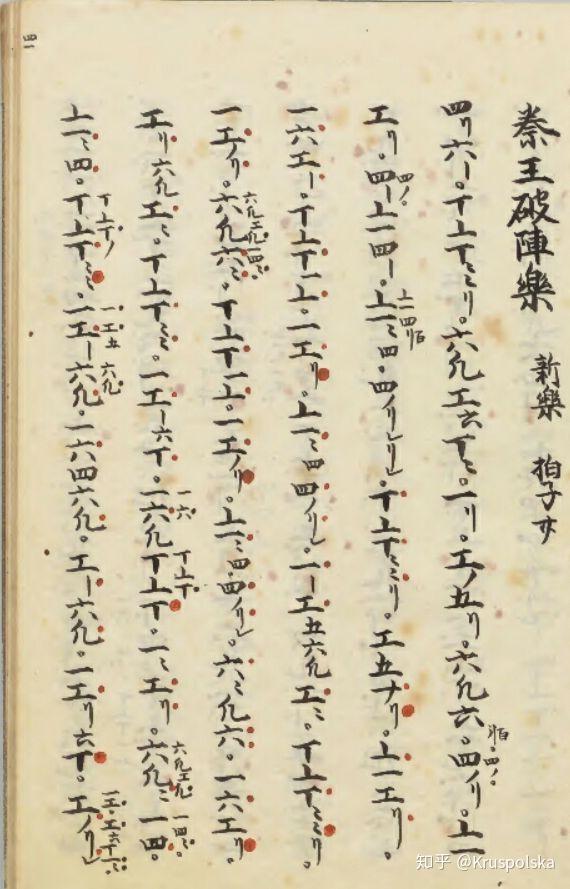 秦王破陣樂 新樂 拍子廿
四リ六ー。丅上丅ミミリ。六几工六丅ミ。一リ。工ノ五リ。六几六。四ノリ。上一
工リ。四ー上一四ー。上一ミ四。四ノリ」リ」。丅上丅ミミリ。工五丅リ。上一工リ。
一六工ー。丅上丅一上。一工リ。上一ミ四四ノリ」。一ー工五六几工ミ。丅上丅ミミリ。
一工ノリ。六几六ミ。丅上丅一上。一工ノリ。上一ミ四四ノリ」。六ミ几六。一六工リ。
工リ六几工ミ。丅上丅ミミ。一工ー六丅。一六几丅上丅。一ミ工リ。六几ミ一四。
上一ミ四。丅上丅ミミ。一工ー六几。一六四六几。工ー六几。一工リ六丅。工ノリ」
四一
知乎 @Kruspolska